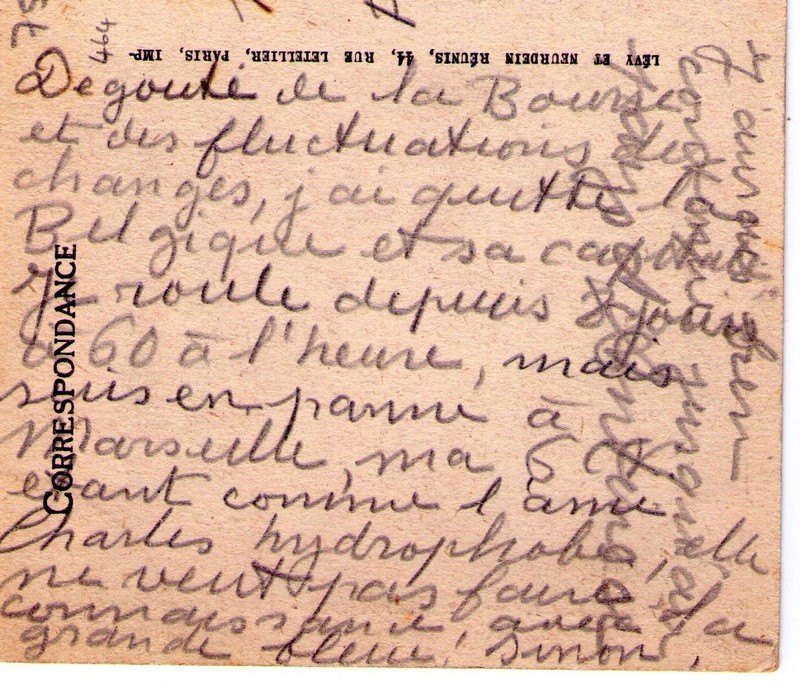 464
LÉVY ET NEURDEIN RÉUNIS, 44, RUE LETELLIER, PARIS, IMP.
CORRESPONDANCE
Degouté de la Bourse
et des fluctuations des
changes, j'ai quitté la
Belgique et sa capitale
Je roule depuis 8 jours
à 60 à l'heure, mais
suis en panne à
Marseille, ma 5
étant comme l'ami
Charles hydrophobe, elle
ne veut pas faire
connaissance avec la
grande bleue! Sinon,
j'aurais bien